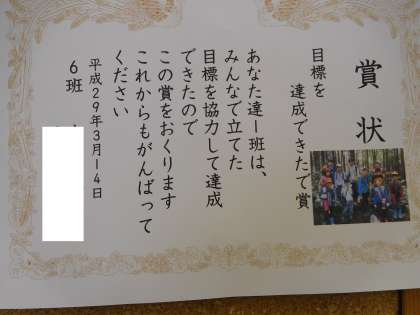 賞状
目標を
達成できたで賞
あなた達1班は、
みんなで立てた
目標を協力して達成
できたので
この賞をおくります
これからもがんばって
ください
平成29年3月14日
6班